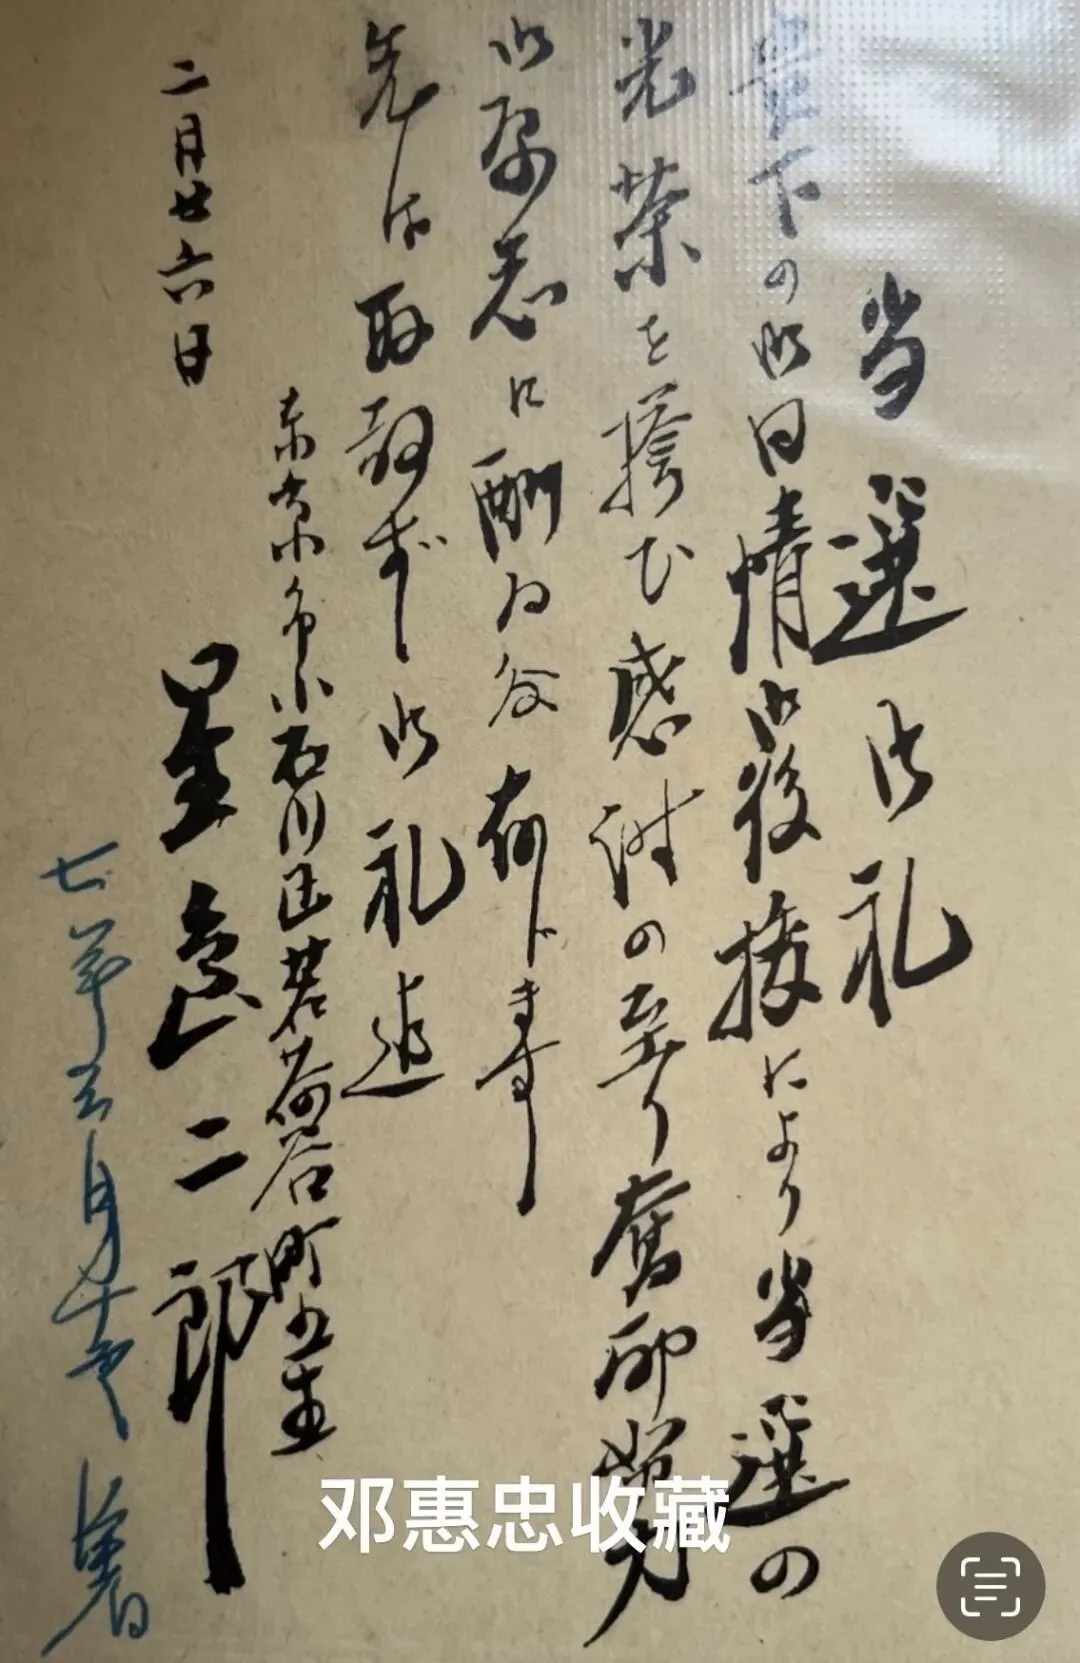 当選御礼
貴下の御同情御後援により当選の
光栄を擔ひ感謝の至り奮励努力
御厚志に酬ゐ度存じます
先は不取敢御礼迄
二月廿六日
東京市小石川区茗荷谷町五
星島二郎
七年三月十
着
邓惠忠收藏